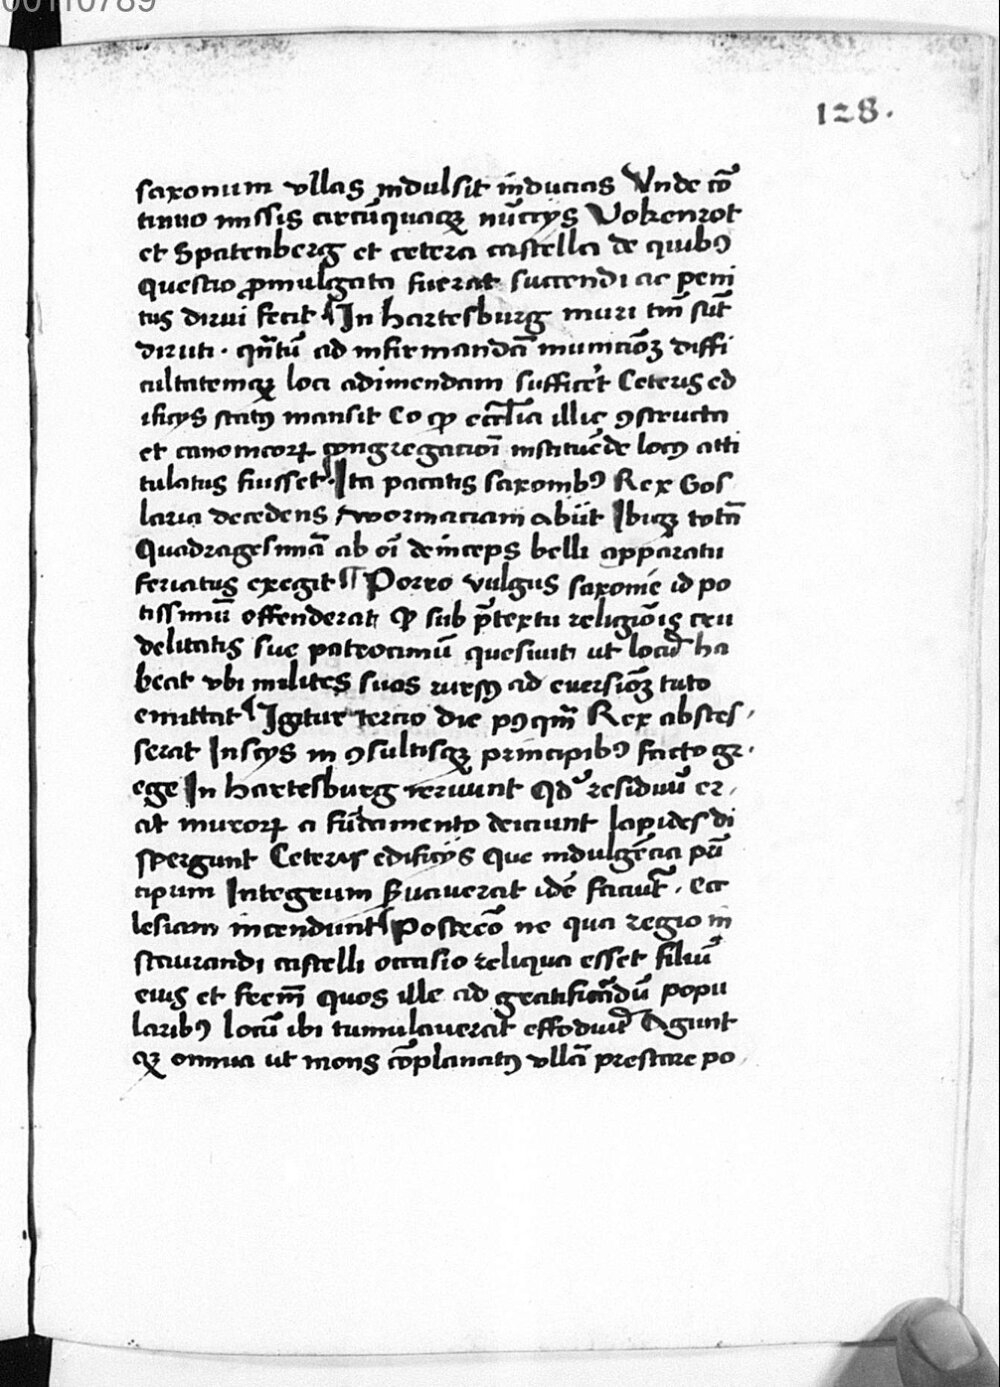 00110789
128.
saxonum vllas indulsit inducias Vnde cō
tinuo missis circūquaqꝫ nūcijs Vokenrot
et Spatenberg et cetera castella de quibꝰ
questio ꝓmulgata fuerat succendi ac peni
tus dirui fecit ¶ In hartesburg muri tm̄ sūt
diruti · qn̄tū ad infirmandā municiōꝫ diffi
cultatemqꝫ loci adimendam sufficeret Ceteris ed
ificijs statꝰ mansit Eo ꝙ eccl̄ia illic ꝯstructa
et canonicorꝝ ꝯngregacioī instituēde locꝰ atti
tulatus fuisset · Ita pacatis saxonibꝰ Rex Gos
laria decedens wormaciam abijt Ibiqꝫ totā
Quadragesimā ab oī deinceps belli apparatu
feriatus exegit ¶ Porro vulgus saxonie id po
tissimū offenderat ꝙ sub p̄textu religiōis cru
delitatis sue patrocimū quesiuit ut locū ha
beat vbi milites suos rursꝰ ad euersiōꝫ tuto
emittat ¶ Igitur tercio die pꝰqm̄ Rex absces
serat Inscijs in ꝯsultisqꝫ principibꝰ facto gr
ege In hartesburg reruunt Qd̄ residuū er
at murorꝝ a fūdamento deiciunt lapides di
spergunt Ceteris edificijs Que indulgēcia prī
cipum Integrum ẜuauerat idē faciūt · ecc
lesiam incendunt ¶ Postea ne qua regio in
staurandi castelli occasio reliqua esset filiū
eius et frem̄ quos ille ad gratificādū popu
laribꝰ locū ibi tumulauerat effodiūt Agunt
qꝫ omnia ut mons cōplanatꝰ vllā prestare po